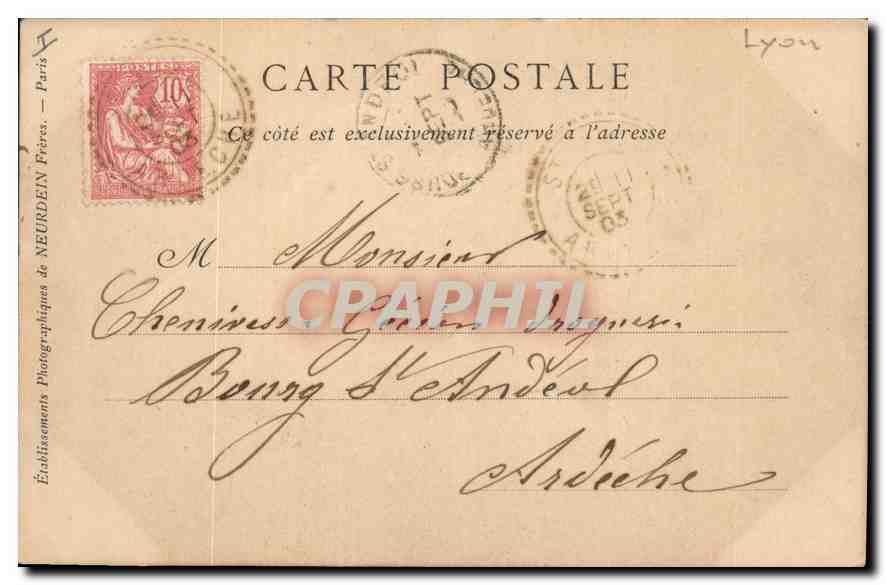 Lyon
I
CARTE POSTALE
Ce côté est exclusivement réservé à l'adresse
POSTES
10
SEPT
03
M Monsieur
droguerie
CPAPHIL
Bourg St Andéol
Ardèche
Établissements Photographiques de NEURDEIN Frères. — Paris